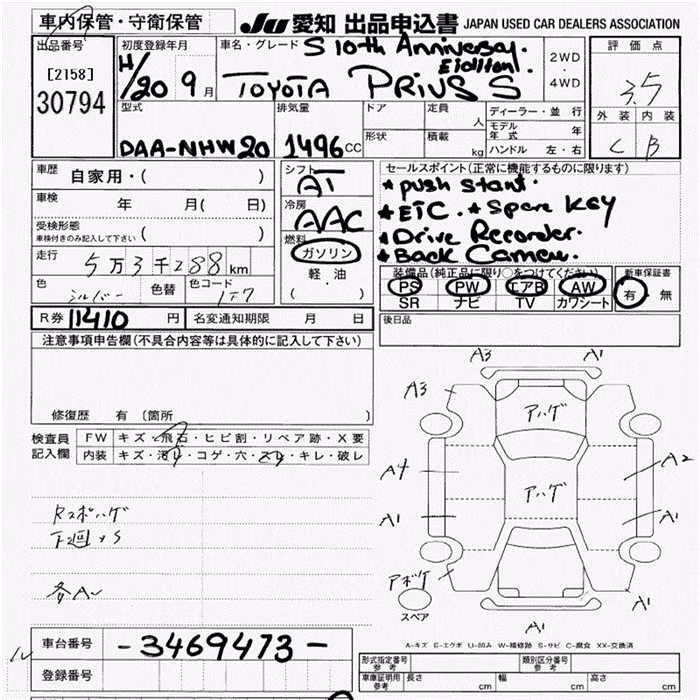 車内保管・守衛保管
JU 愛知 出品申込書 JAPAN USED CAR DEALERS ASSOCIATION
出品番号
[2158]
30794
初度登録年月
H/20 9月
車名・グレード
S 10th Anniversary.
TOYOTA PRIUS S
2WD・4WD
評価点
3.5
外装 内装
C B
型式
DAA-NHW20
排気量
1496CC
ドア
定員
人
形状
積載
kg
ディーラー・並行
モデル年式 年
ハンドル 左・右
車歴
自家用・( )
車検
年 月( 日)
受検形態
車検付きのみ記入して下さい ( )
走行
5万3千288km
色
シルバー
色替
色コード
1F7
シフト
AT
冷房
AAC
燃料
ガソリン
軽・油
( )
セールスポイント(正常に機能するものに限ります)
*push start.
*ETC. *Spare Key
*Drive Recorder.
*Back Camera.
装備品(純正品に限り○をつけてください)
PS PW エアB AW
SR ナビ TV カワシート
新車保証書
有・無
R券 11410円
名変通知期限 月 日
後日品
注意事項申告欄(不具合内容等は具体的に記入して下さい)
修復歴 有〔箇所
検査員記入欄
FW キズ・飛石・ヒビ割・リペア跡・X要
内装 キズ・汚レ・コゲ・穴・スレ・キレ・破レ
Rスポハゲ
下廻+S
各A〜
A3 A1
A3 アハゲ
A4 アハゲ A2
A1 A1
アボケ
スペア
A1 A1
A-キズ E-エクボ U-凹み W-補修跡 S-サビ C-腐食 XX-交換済
車台番号
-3469473-
登録番号
形式指定番号 参考
類別区分番号 参考
車庫証明用 参考
長さ cm 幅 cm 高さ cm